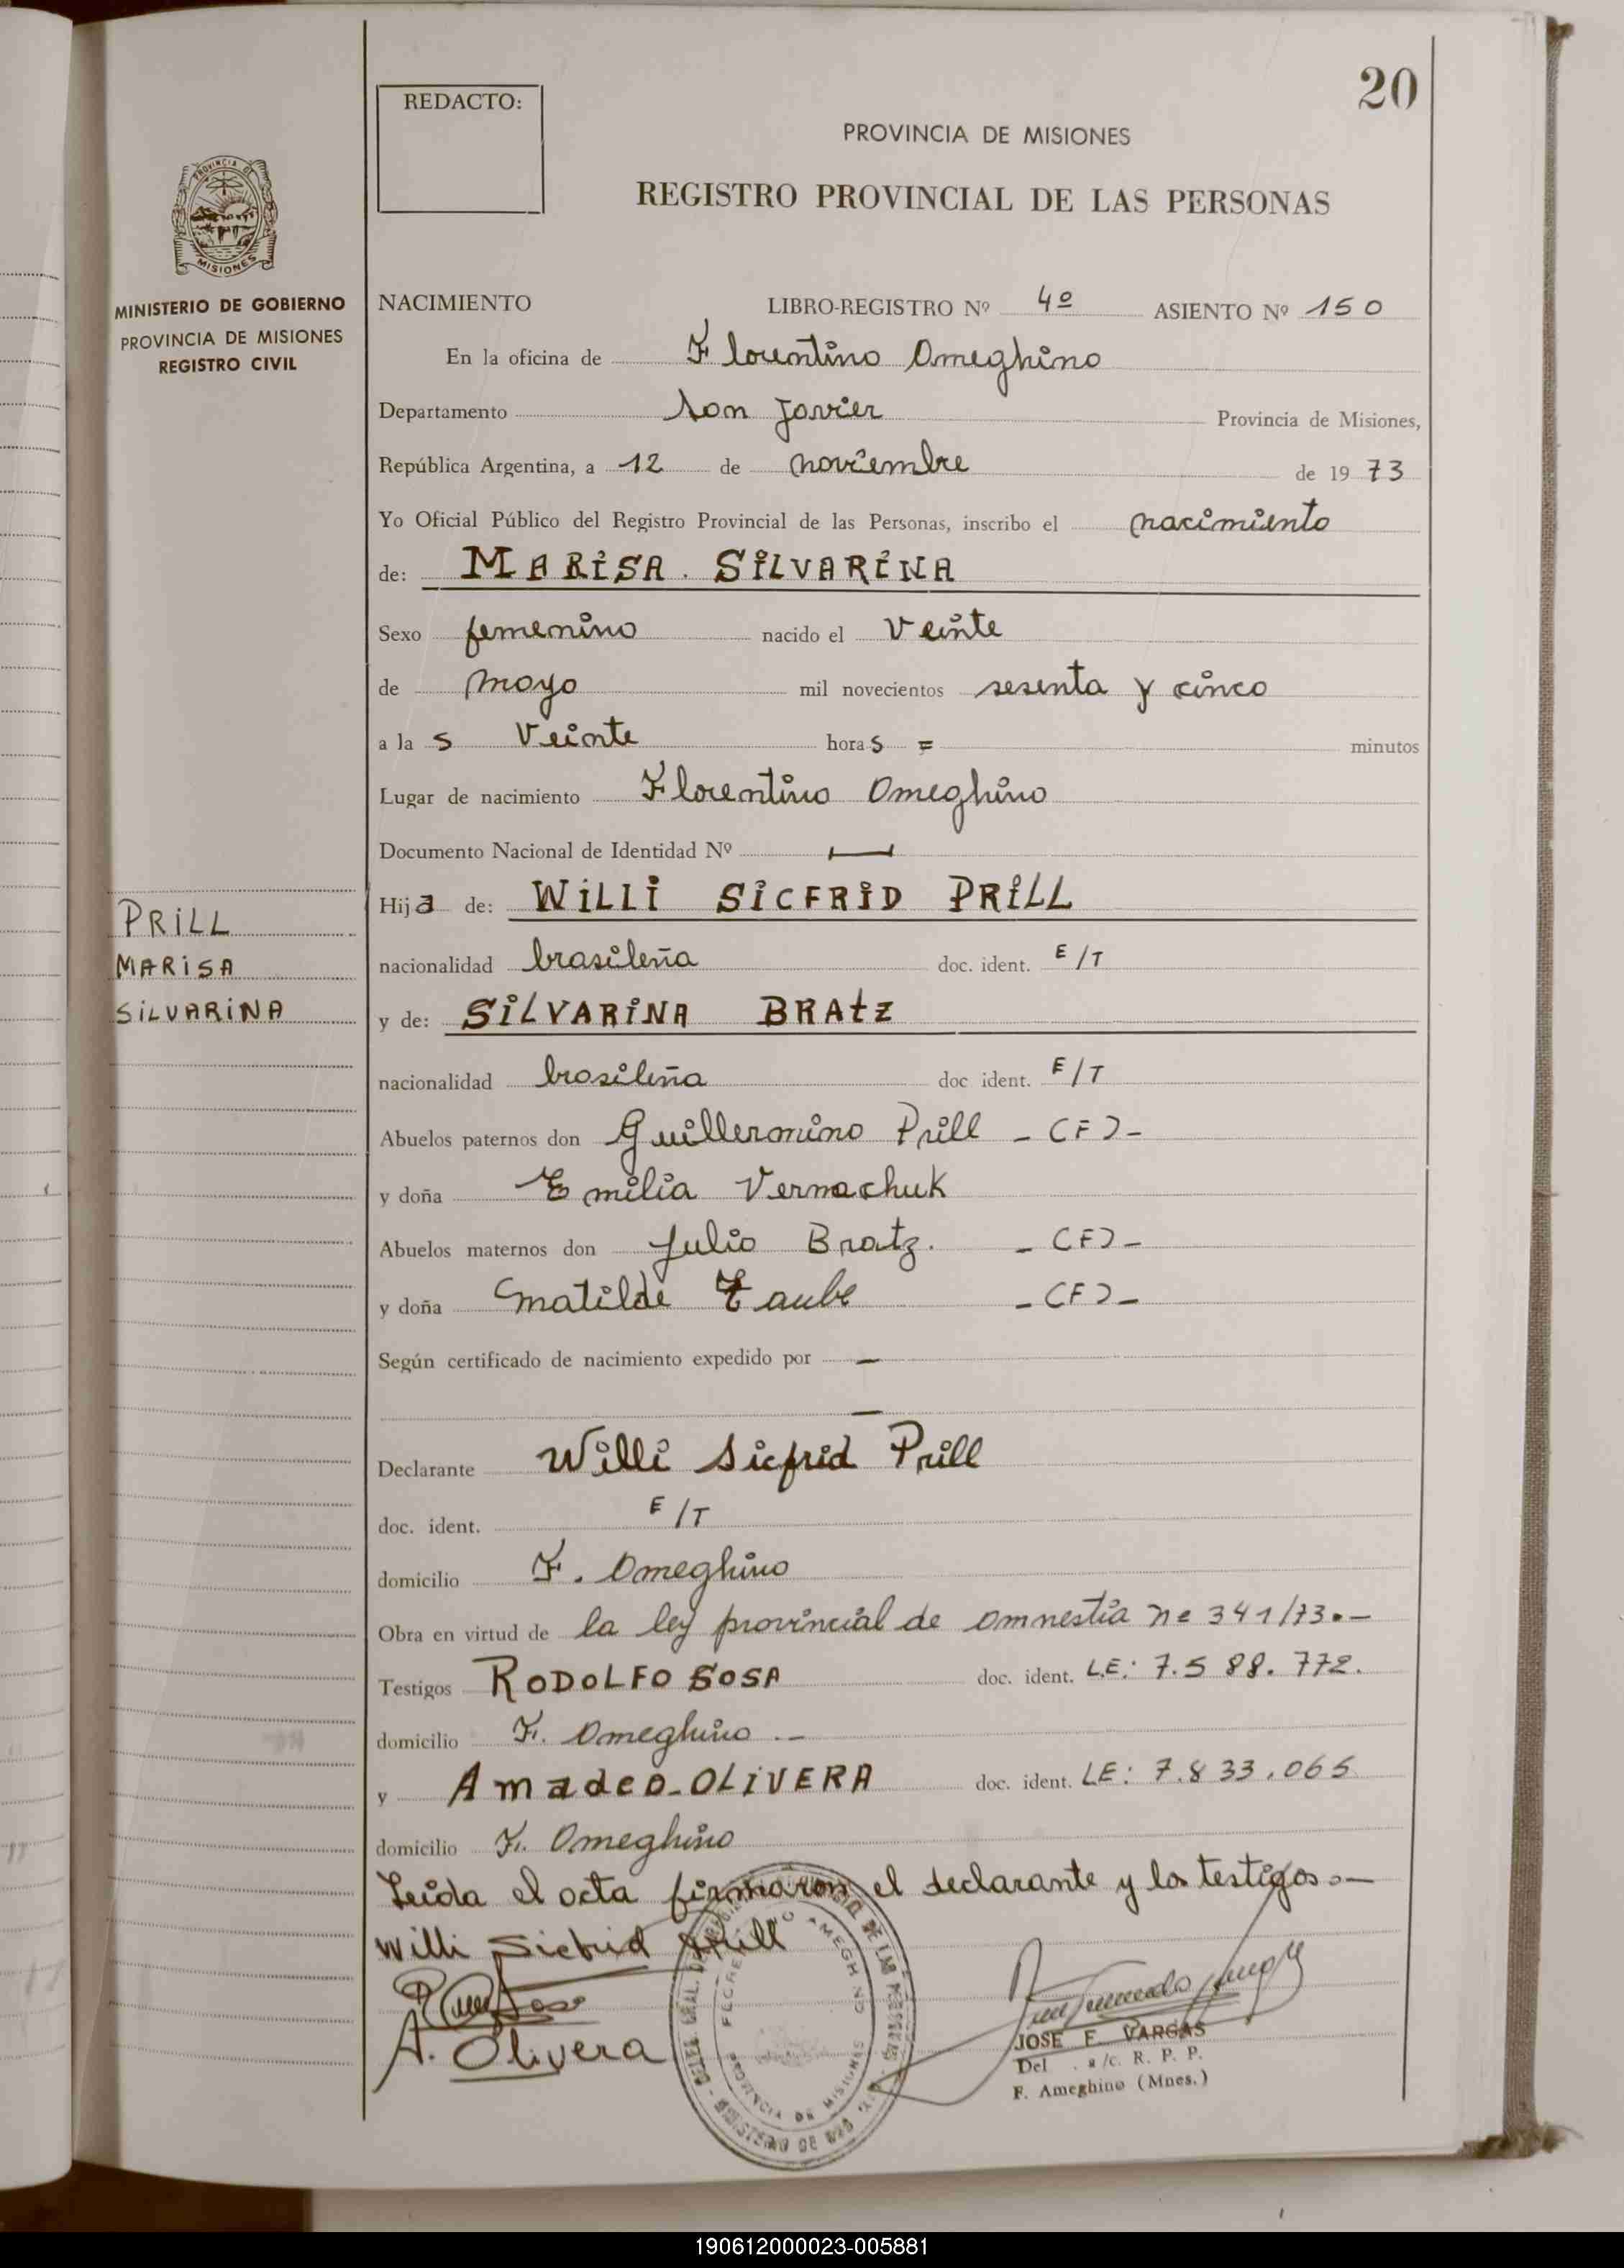 20
REDACTO:
PROVINCIA DE MISIONES
REGISTRO PROVINCIAL DE LAS PERSONAS
PROVINCIA DE
MISIONES
MINISTERIO DE GOBIERNO
PROVINCIA DE MISIONES
REGISTRO CIVIL
NACIMIENTO LIBRO-REGISTRO Nº 4º ASIENTO Nº 150
En la oficina de Florentino Ameghino
Departamento San Javier Provincia de Misiones,
República Argentina, a 12 de noviembre de 1973
Yo Oficial Público del Registro Provincial de las Personas, inscribo el nacimiento
de: MARISA. SILVARINA
Sexo femenino nacido el Veinte
de mayo mil novecientos sesenta y cinco
a la s Veinte hora s = minutos
Lugar de nacimiento Florentino Ameghino
Documento Nacional de Identidad Nº —
Hija de: WILLI SICFRID PRILL
PRILL
MARISA
SILVARINA
nacionalidad brasileña doc. ident. E/T
y de: SILVARINA BRAtZ
nacionalidad brasileña doc ident. E/T
Abuelos paternos don Guillermino Prill - (F)-
y doña Emilia Vernachuk
Abuelos maternos don Julio Bratz. - (F)-
y doña Matilde Taube - (F)-
Según certificado de nacimiento expedido por —
—
Declarante Willi Sicfrid Prill
doc. ident. E/T
domicilio F. Ameghino
Obra en virtud de la ley provincial de amnestia nº 341/73.-
Testigos RODOLFO SOSA doc. ident. L.E: 7.588.772.
domicilio F. Ameghino .-
y Amadeo-OLIVERA doc. ident. LE: 7.833.065
domicilio F. Ameghino
Leida el acta firmaron el declarante y los testigos.-
Willi Sicfrid Prill
A. Olivera
JOSE F. VARGAS
Del. a/c. R. P. P.
F. Ameghino (Mnes.)
190612000023-005881